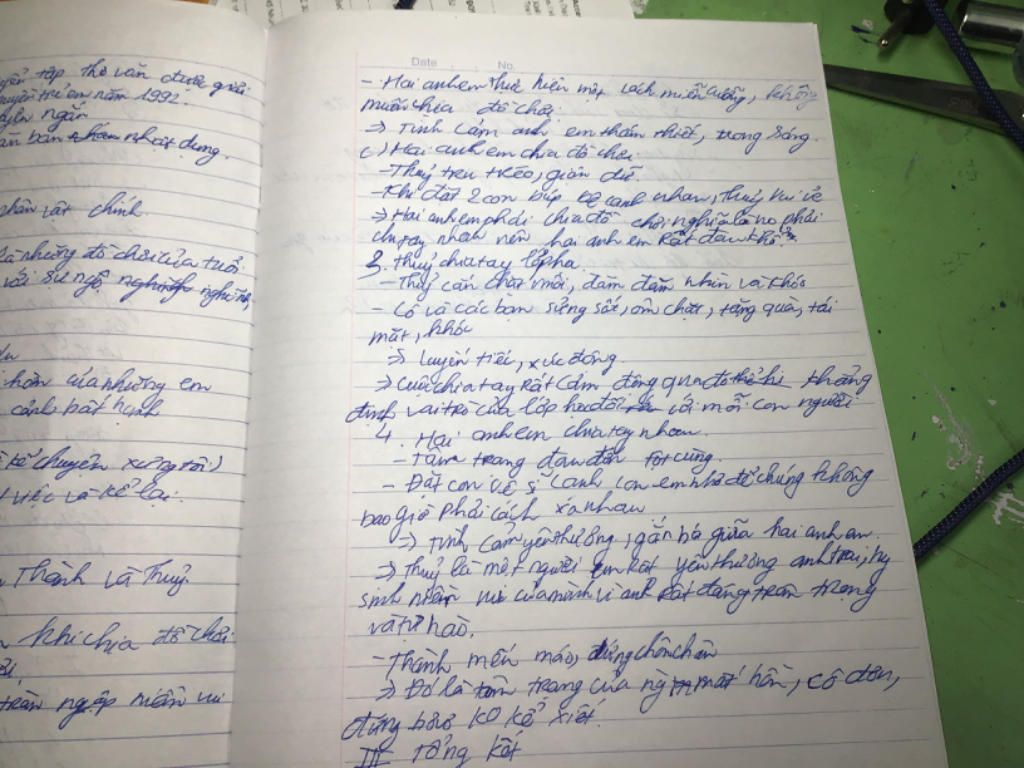 tập thơ văn được giải
năm 1992.
ngắn
bản nhật dụng.
nhân vật chính.
Là những đồ chơi của tuổi
với sự ngộ nghĩnh,
của những em
cảnh bất hạnh
kể chuyện xưng tôi)
việc và kể lại.
Thành và Thuỷ.
khi chia đồ chơi
tràn ngập niềm vui
Date No.
- Hai anh em thực hiện một cách miễn cưỡng, không
muốn chia đồ chơi.
=> Tình cảm anh em thắm thiết, trong sáng.
c) Hai anh em chia đồ chơi
- Thuỷ tru tréo, giận dữ.
- Khi đặt 2 con búp bê cạnh nhau, Thuỷ vui vẻ
=> Hai anh em phải chia đồ chơi nghĩa là họ phải
chia tay nhau nên hai anh em rất đau khổ.
3. Thuỷ chia tay lớp học
- Thuỷ cắn chặt môi, đăm đăm nhìn và khóc
- Cô và các bạn sửng sốt, ôm chặt, tặng quà, tái
mặt, khóc
=> Luyến tiếc, xúc động.
=> Cuộc chia tay rất cảm động qua đó khẳng
định vai trò của lớp học đối với mỗi con người
4. Hai anh em chia tay nhau.
- Tâm trạng đau đớn tột cùng.
- Đặt con vệ sĩ cạnh con em nhỏ để chúng không
bao giờ phải cách xa nhau
=> Tình cảm yêu thương, gắn bó giữa hai anh em.
=> Thuỷ là một người em rất yêu thương anh trai, hy
sinh niềm vui của mình vì anh rất đáng trân trọng
và tự hào.
- Thành mếu máo, đứng chôn chân
=> Đó là tâm trạng của ng mất hồn, cô đơn,
ko kể xiết.
III Tổng kết